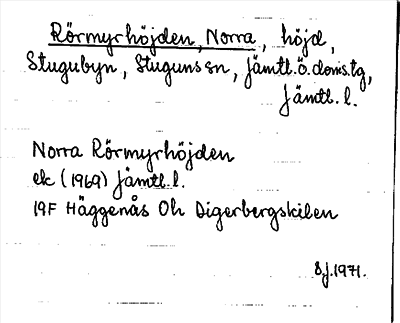 Rörmyrhöjden, Norra, höjd,
Stugubyn, Stuguns sn, Jämtl.ö.doms.tg,
Jämtl. l.
Norra Rörmyrhöjden
ek (1969) Jämtl.l.
19F Häggenås Oh Digerbergskilen
S.J.1971.